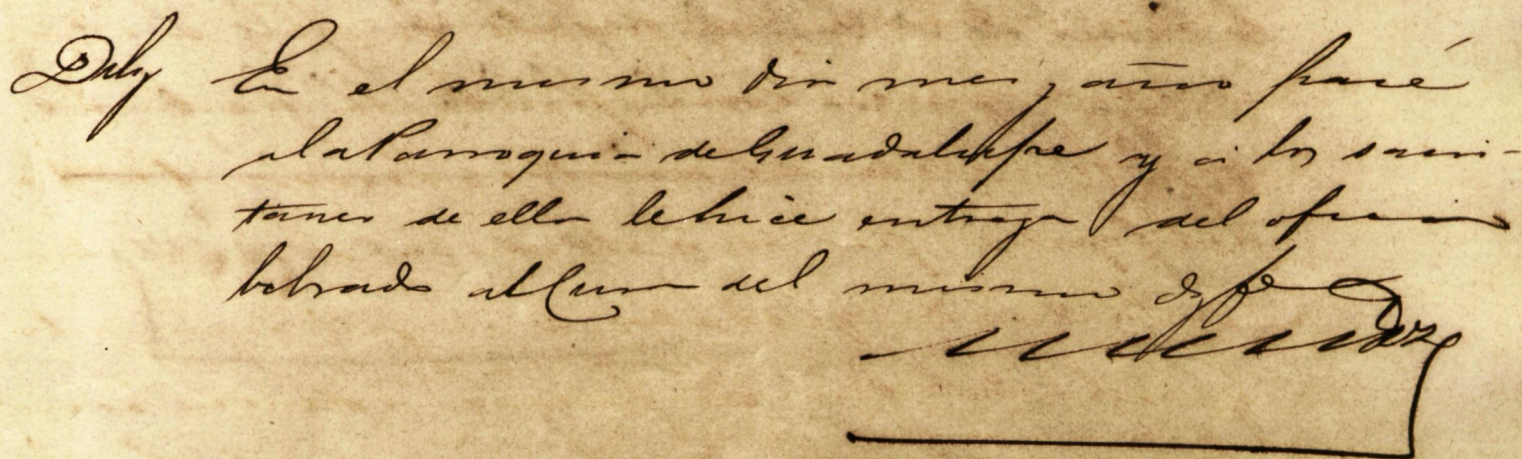 Dilig En el mismo dia mes y año pasé
a la Parroquia de Guadalupe y á los sacris-
tanes de ella le hice entrega del oficio
librado al Cura del mismo doy fe